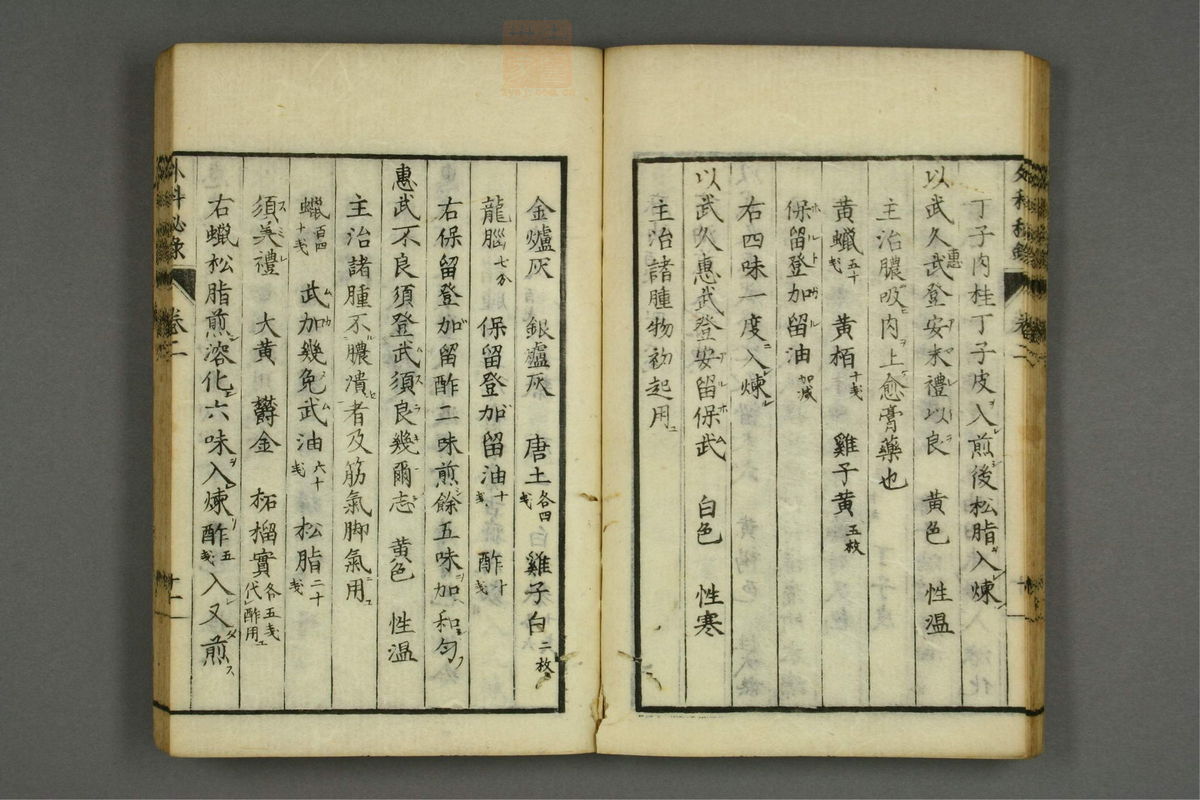 丁子肉桂丁子皮入煎後松脂入煉
以武久惠武登安末禮以良 黃色 性温
主治膿吸肉上愈膏藥也
黃蠟五十戔 黃栢十戔 雞子黃五枚
保留登加留油加减
右四味一度入煉
以武久惠武登安留保武 白色 性寒
主治諸腫物初起用
金爐灰 銀爐灰 唐土各四戔 雞子白二枚
龍腦七分 保留登加留油十戔 酢十戔
右保留登加留酢二味煎餘五味加和匀
惠武不良須登武須良幾爾志 黃色 性温
主治諸腫不膿潰者及筋氣脚氣用
蠟百四十戔 武加幾免武油六十戔 松脂二十戔
須美禮 大黃 欝金 柘榴實各五戔代酢用
右蠟松脂煎溶化六味入煉酢五戔入又煎
外科秘錄 卷二 十一